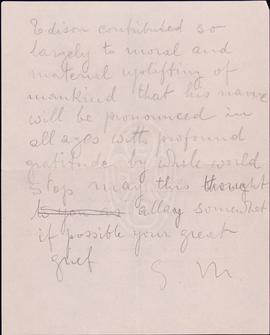 Edison contributed so
largely to moral and
material uplifting of
mankind that his name
will be pronounced in
all ages with profound
gratitude by whole world
stop may this thought
to you in allay somewhat
if possible your great
grief S. M